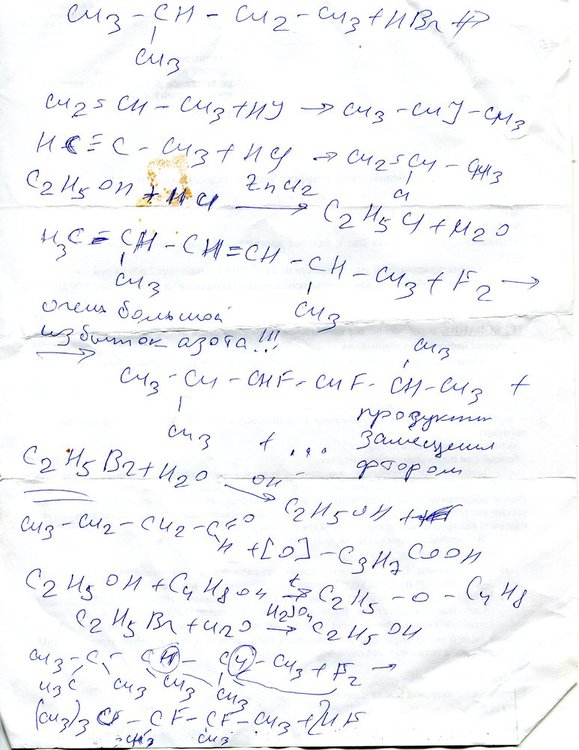 CH3 – CH – CH2 – CH3 + HBr
CH3
CH2 = CH – CH3 + HJ → CH3 – CHJ – CH3
HC ≡ C – CH3 + HCl → CH2 = CH – CH3
Cl
C2H5OH + HCl ZnCl2 → C2H5Cl + H2O
H3C – CH – CH = CH – CH – CH3 + F2 →
CH3 CH3
очень большой
избыток азота!!!
→ CH3
CH3 – CH – CHF – CHF – CH – CH3 +
CH3 + ... продукты
замещения
фтором
C2H5Br + H2O OH⁻ → C2H5OH +
CH3 – CH2 – CH2 – C =O H + [O] – C3H7COOH
C2H5OH + C4H8OH t → H2SO4 C2H5 – O – C4H8
C2H5Br + H2O → C2H5OH
CH3 – C – CH – CH – CH3 + F2 →
H3C CH3 CH3 CH3
(CH3)3C – CF – CF – CH3 + 2HF
CH3 CH3